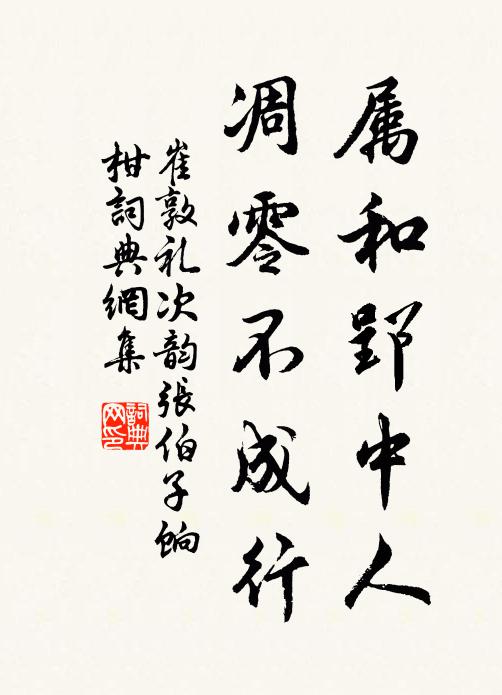 属和郢中人
凋零不成行
崔敦礼次韵張伯子餉
柑詞典網集
詞典
网印